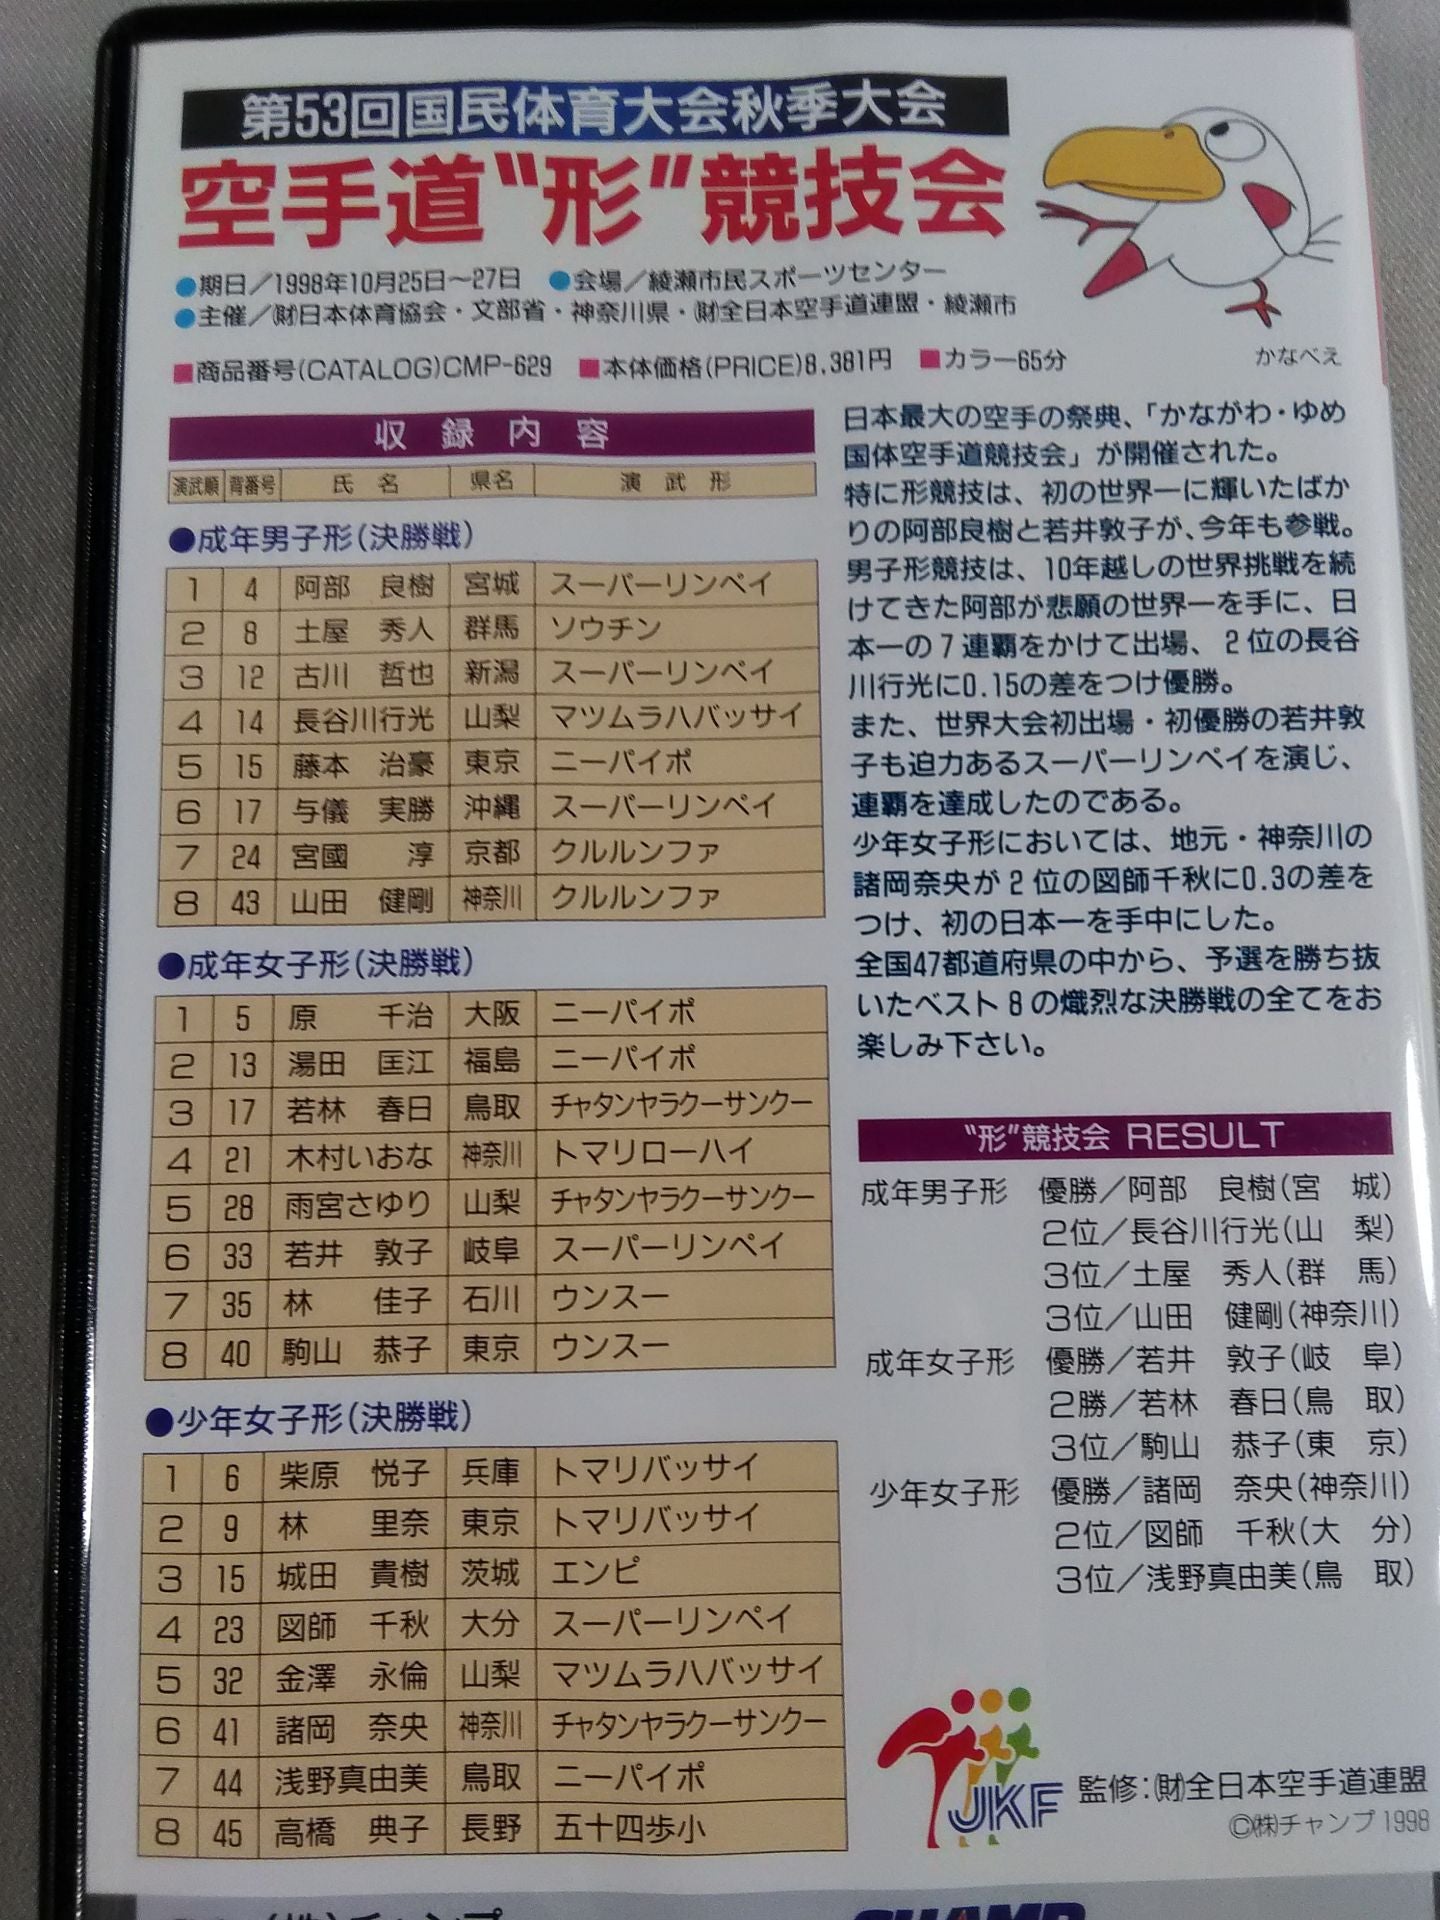 第53回国民体育大会秋季大会
空手道"形"競技会
●期日／1998年10月25日～27日 ●会場／綾瀬市民スポーツセンター
●主催／㈶日本体育協会・文部省・神奈川県・㈶全日本空手道連盟・綾瀬市
かなべえ
■商品番号(CATALOG)CMP-629 ■本体価格(PRICE)8,381円 ■カラー65分
収録内容
演武順 背番号 氏名 県名 演武形
●成年男子形(決勝戦)
1 4 阿部 良樹 宮城 スーパーリンペイ
2 8 土屋 秀人 群馬 ソウチン
3 12 古川 哲也 新潟 スーパーリンペイ
4 14 長谷川行光 山梨 マツムラハバッサイ
5 15 藤本 治豪 東京 ニーパイポ
6 17 与儀 実勝 沖縄 スーパーリンペイ
7 24 宮國 淳 京都 クルルンファ
8 43 山田 健剛 神奈川 クルルンファ
●成年女子形(決勝戦)
1 5 原 千治 大阪 ニーパイポ
2 13 湯田 匡江 福島 ニーパイポ
3 17 若林 春日 鳥取 チャタンヤラクーサンクー
4 21 木村いおな 神奈川 トマリローハイ
5 28 雨宮さゆり 山梨 チャタンヤラクーサンクー
6 33 若井 敦子 岐阜 スーパーリンペイ
7 35 林 佳子 石川 ウンスー
8 40 駒山 恭子 東京 ウンスー
●少年女子形(決勝戦)
1 6 柴原 悦子 兵庫 トマリバッサイ
2 9 林 里奈 東京 トマリバッサイ
3 15 城田 貴樹 茨城 エンピ
4 23 図師 千秋 大分 スーパーリンペイ
5 32 金澤 永倫 山梨 マツムラハバッサイ
6 41 諸岡 奈央 神奈川 チャタンヤラクーサンクー
7 44 浅野真由美 鳥取 ニーパイポ
8 45 高橋 典子 長野 五十四歩小
日本最大の空手の祭典、「かながわ・ゆめ
国体空手道競技会」が開催された。
特に形競技は、初の世界一に輝いたばか
りの阿部良樹と若井敦子が、今年も参戦。
男子形競技は、10年越しの世界挑戦を続
けてきた阿部が悲願の世界一を手に、日
本一の7連覇をかけて出場、2位の長谷
川行光に0.15の差をつけ優勝。
また、世界大会初出場・初優勝の若井敦
子も迫力あるスーパーリンペイを演じ、
連覇を達成したのである。
少年女子形においては、地元・神奈川の
諸岡奈央が2位の図師千秋に0.3の差を
つけ、初の日本一を手中にした。
全国47都道府県の中から、予選を勝ち抜
いたベスト8の熾烈な決勝戦の全てをお
楽しみ下さい。
"形"競技会 RESULT
成年男子形 優勝／阿部 良樹(宮 城)
2位／長谷川行光(山 梨)
3位／土屋 秀人(群 馬)
3位／山田 健剛(神奈川)
成年女子形 優勝／若井 敦子(岐 阜)
2勝／若林 春日(鳥 取)
3位／駒山 恭子(東 京)
少年女子形 優勝／諸岡 奈央(神奈川)
2位／図師 千秋(大 分)
3位／浅野真由美(鳥 取)
JKF 監修：㈶全日本空手道連盟
©㈱チャンプ1998
(株)チャンプ
CHAMP